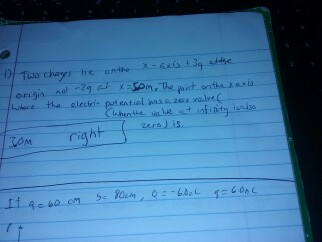 1) Two charges lie on the x-axis +3q at the
origin and -2q at x=50m. The point on the x axis
where the electric potential has a zero value (
(when the value at infinity is also
zero) is.
30m right
If a=60 cm b= 80cm, Q=-6.0nC q=6.0nC